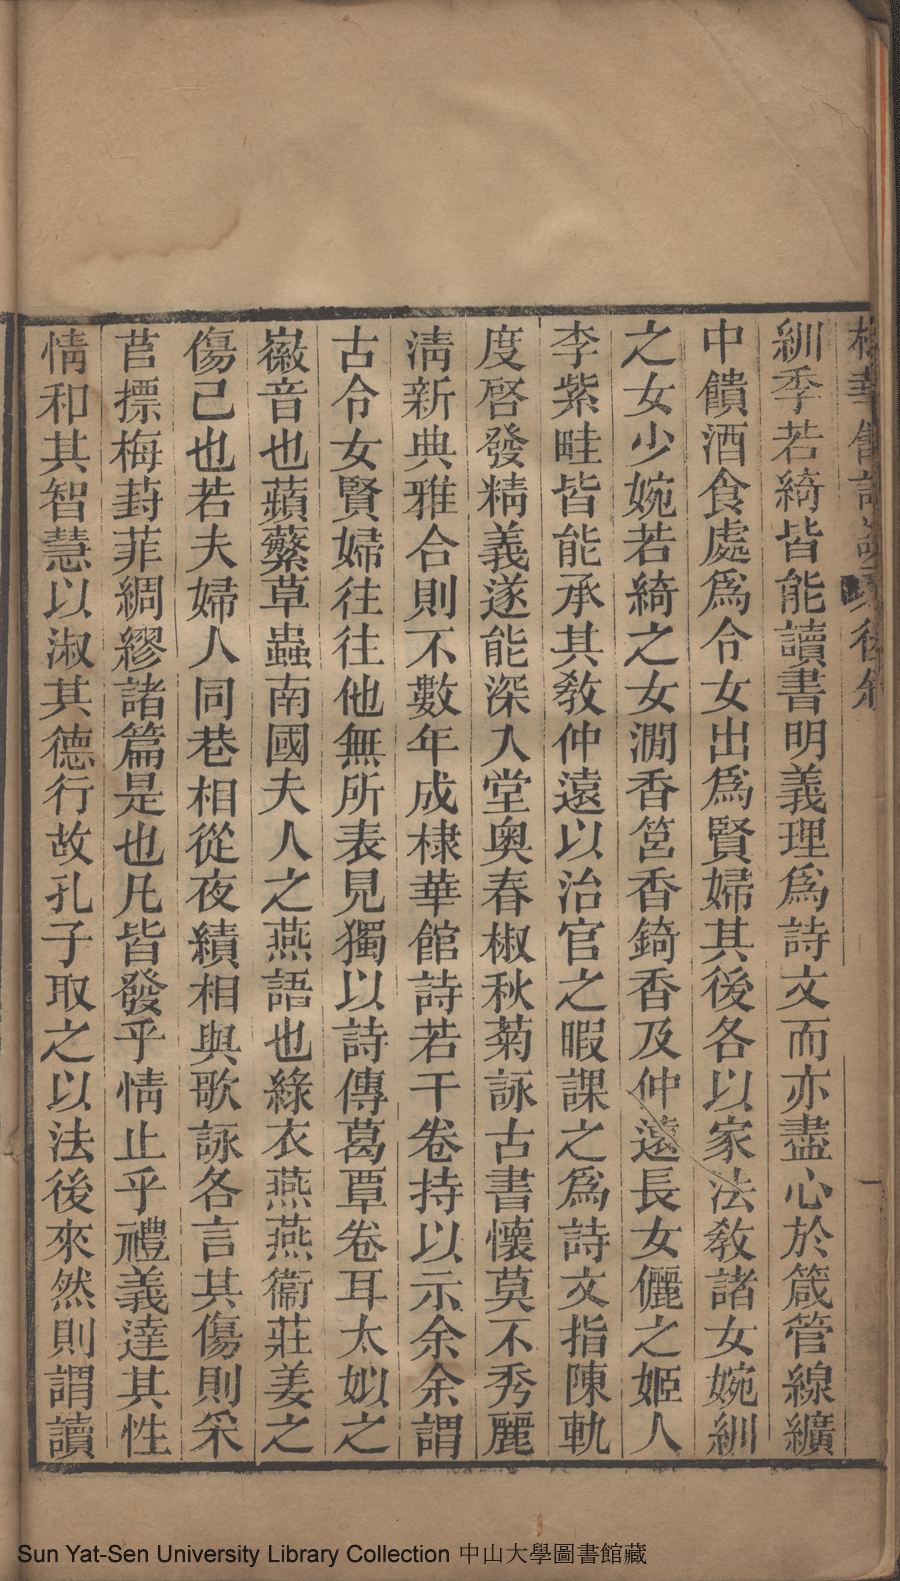 華館詩
後
一
紃季若綺皆能讀書明義理爲詩文而亦盡心於箴管線纊
中饋酒食處爲令女出爲賢婦其後各以家法敎諸女婉紃
之女少婉若綺之女澗香筥香錡香及仲遠長女儷之姬人
李紫畦皆能承其敎仲遠以治官之暇課之爲詩文指陳軌
度啓發精義遂能深入堂奥春椒秋菊詠古書懷莫不秀麗
淸新典雅合則不數年成棣華館詩若干卷持以示余余謂
古令女賢婦往往他無所表見獨以詩傳葛覃卷耳太姒之
徽音也蘋蘩草蟲南國夫人之燕語也綠衣燕燕衞莊姜之
傷己也若夫婦人同巷相從夜績相與歌詠各言其傷則采
苢摽梅葑菲綢繆諸篇是也凡皆發乎情止乎禮義達其性
情和其智慧以淑其德行故孔子取之以法後來然則謂讀
Sun Yat-Sen University Library Collection 中山大學圖書館藏